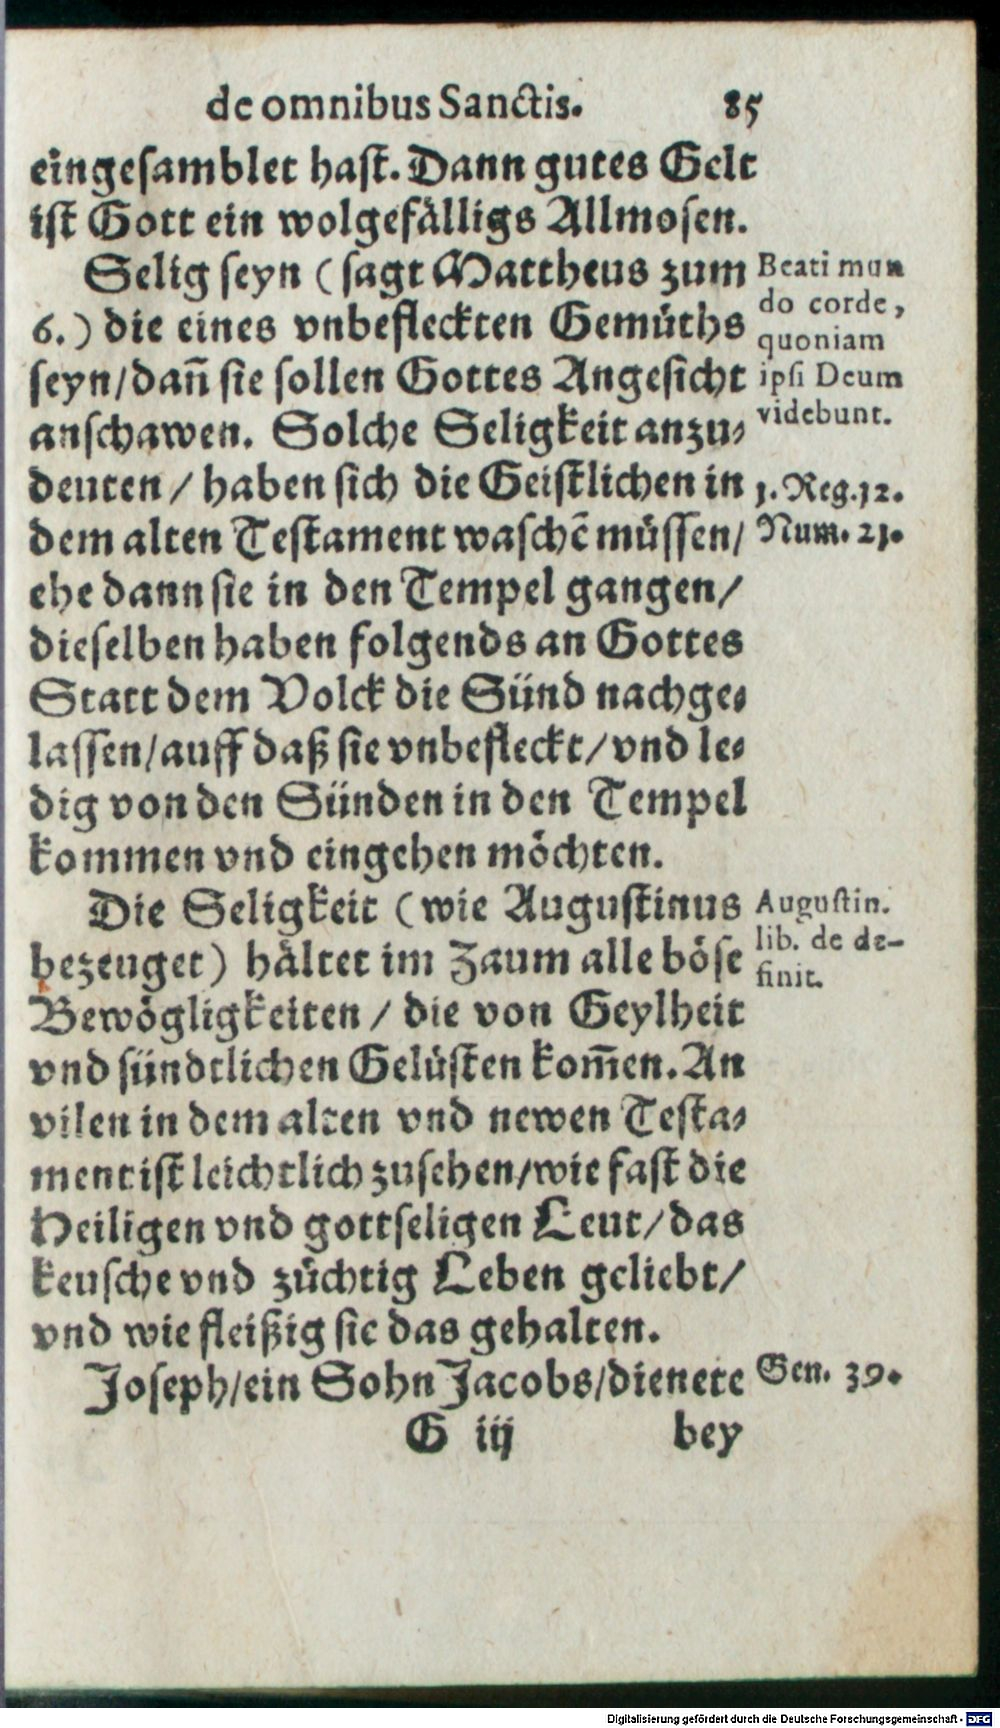 de omnibus Sanctis. 85
eingesamblet hast. Dann gutes Gelt
ist Gott ein wolgefälligs Allmosen.
Selig seyn (sagt Mattheus zum
6.) die eines vnbefleckten Gemüths
seyn/dañ sie sollen Gottes Angesicht
anschawen. Solche Seligkeit anzu⸗
deuten / haben sich die Geistlichen in
dem alten Testament waschẽ müssen/
ehe dann sie in den Tempel gangen/
dieselben haben folgends an Gottes
Statt dem Volck die Sünd nachge⸗
lassen/auff daß sie vnbefleckt/vnd le⸗
dig von den Sünden in den Tempel
kommen vnd eingehen möchten.
Die Seligkeit (wie Augustinus
bezeuget) hältet im Zaum alle böse
Bewögligkeiten / die von Geylheit
vnd sündtlichen Gelüsten kom̃en. An
vilen in dem alten vnd newen Testa⸗
ment ist leichtlich zusehen/wie fast die
Heiligen vnd gottseligen Leut/das
keusche vnd züchtig Leben geliebt/
vnd wie fleißig sie das gehalten.
Joseph/ein Sohn Jacobs/dienete
G iij bey
Beati mun
do corde,
quoniam
ipsi Deum
videbunt.
1. Reg. 12.
Num. 21.
Augustin.
lib. de de-
finit.
Gen. 39.
Digitalisierung gefördert durch die Deutsche Forschungsgemeinschaft - DFG